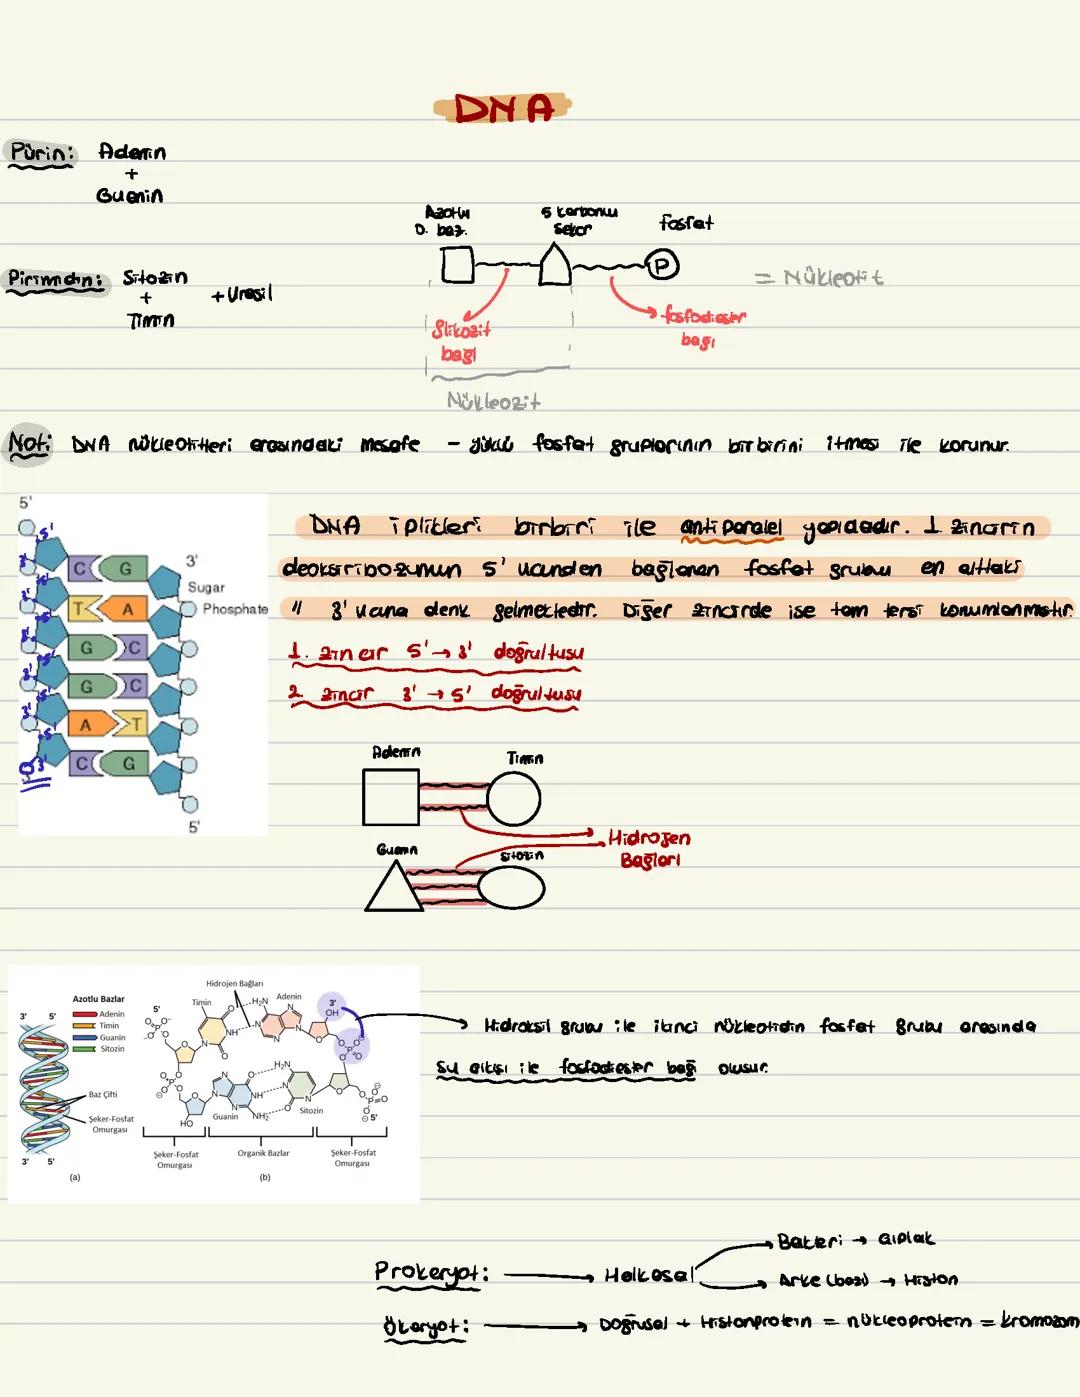 DNA
Pürin: Adenin
+
Guanin
Azotlu
O. baz.
5 karbonlu
şeker
fosfat
P
= Nükleotit
Pirimidin: Sitozin
+
Timin
+ Urasil
glikozit
bağı
fosfodiester
bağı
Nükleozit
Not: DNA nükleotitleri arasındaki mesafe - yüklü fosfat gruplarının birbirini itmesi ile korunur.
5'
3'
Sugar
Phosphate
C G
T A
G C
G C
A T
C G
5'
DNA iplikleri birbiri ile antiparalel yapıdadır. 1. zincirin
deoksiribozunun 5' ucundan bağlanan fosfat grubu en alttaki
" 3' ucuna denk gelmektedir. Diğer zincirde ise tam tersi konumlanmıştır.
1. zincir 5' → 3' doğrultusu
2. zincir 3' → 5' doğrultusu
Adenin
Timin
Guanin
Sitozin
Hidrojen
Bağları
Azotlu Bazlar
Adenin
Timin
Guanin
Sitozin
3' 5'
Baz Çifti
Şeker-Fosfat
Omurgası
3' 5'
(a)
Hidrojen Bağları
5'
Timin
Adenin
3'
OH
Guanin
Sitozin
HO
5'
Şeker-Fosfat
Omurgası
Organik Bazlar
Şeker-Fosfat
Omurgası
(b)
Hidroksil grubu ile ikinci nükleotidin fosfat grubu arasında
su çıkışı ile fosfodiester bağ oluşur.
Prokaryot: → Halkasal
Bakteri → çıplak
Arke (bazı) → Histon
Ökaryot: → Doğrusal + Histonprotein = nükleoprotein = kromozom